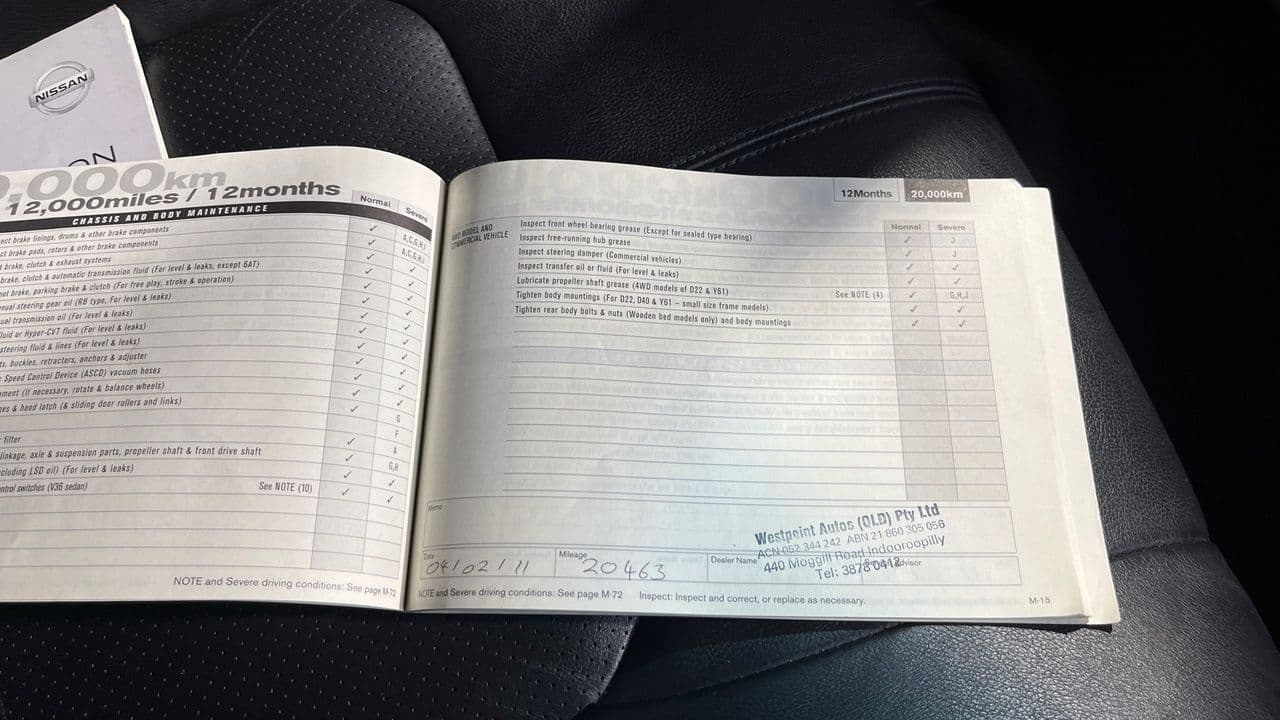 NISSAN
,000km
12,000miles / 12months
CHASSIS AND BODY MAINTENANCE
Normal Severe
brake linings, drums & other brake components ✓ A,C,G,H,J
brake pads, rotors & other brake components ✓ A,C,G,H,J
brake, clutch & exhaust systems ✓ ✓
brake, clutch & automatic transmission fluid (For level & leaks, except 6AT) ✓ ✓
brake, parking brake & clutch (For free play, stroke & operation) ✓ ✓
steering gear oil (RB type, For level & leaks) ✓ ✓
transmission oil (For level & leaks) ✓ ✓
fluid or Hyper-CVT fluid (For level & leaks) ✓ ✓
steering fluid & lines (For level & leaks) ✓ ✓
buckles, retractors, anchors & adjuster ✓ ✓
Speed Control Device (ASCD) vacuum hoses ✓ ✓
(If necessary, rotate & balance wheels) ✓ ✓
& hood latch (& sliding door rollers and links) ✓ ✓
G
filter F
linkage, axle & suspension parts, propeller shaft & front drive shaft ✓ A
(For level & leaks) ✓ G,H
switches (V36 sedan) ✓ ✓
See NOTE (10) ✓ ✓
NOTE and Severe driving conditions: See page M-72
12Months 20,000km
Normal Severe
4WD MODEL AND
COMMERCIAL VEHICLE
Inspect front wheel bearing grease (Except for sealed type bearing) ✓ J
Inspect free-running hub grease ✓ J
Inspect steering damper (Commercial vehicles) ✓ ✓
Inspect transfer oil or fluid (For level & leaks) ✓ ✓
Lubricate propeller shaft grease (4WD models of D22 & Y61) See NOTE (4) ✓ G,H,J
Tighten body mountings (For D22, D40 & Y61 – small size frame models) ✓ ✓
Tighten rear body bolts & nuts (Wooden bed models only) and body mountings ✓ ✓
Memo
Westpoint Autos (QLD) Pty Ltd
ACN 052 344 242 ABN 21 860 305 056
440 Moggill Road Indooroopilly
Tel: 3878 0412
Date 04/02/11 Mileage 20463 Dealer Name
NOTE and Severe driving conditions: See page M-72 Inspect: Inspect and correct, or replace as necessary.
M-15